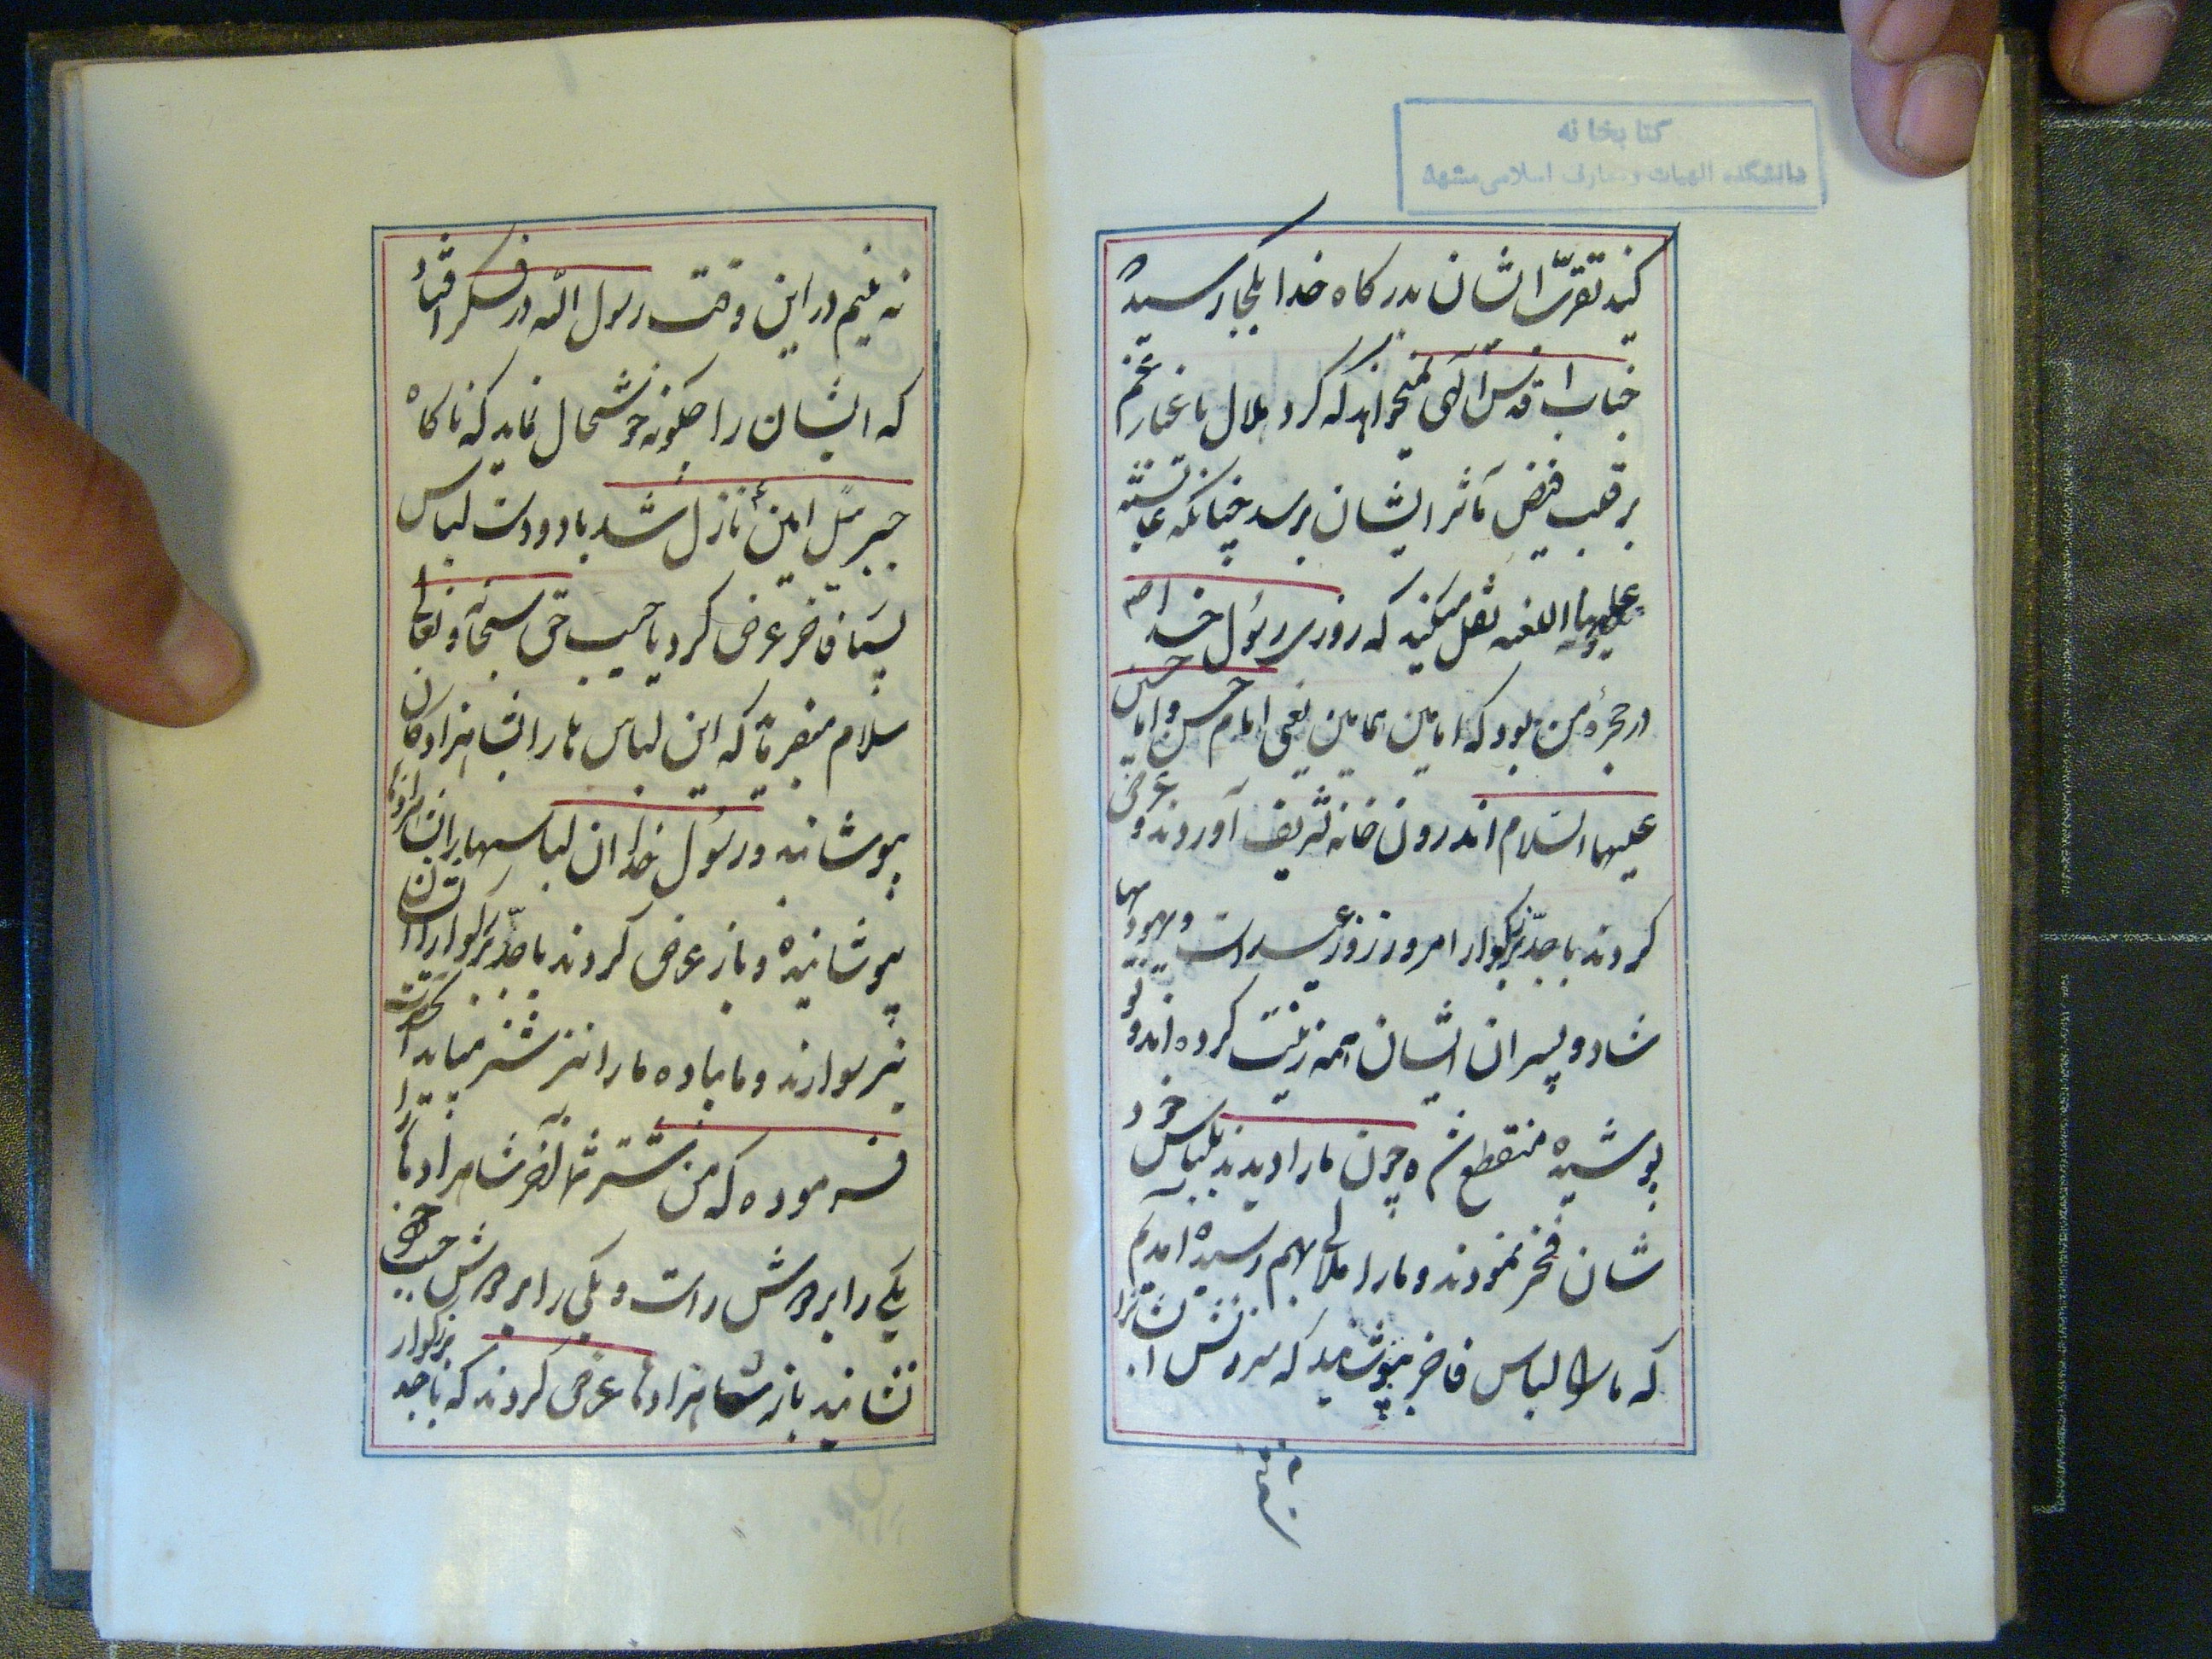 کتابخانه
دانشکده الهیات و معارف اسلامی مشهد
کنید تقرب ایشان بدرگاه خدا بکجا رسیده
جناب اقدس الهی نمیخواهد که کرد ملال با غبار غم
بر قلب فیض مآثر ایشان برسد چنانکه عایشه
علیها اللعنه نقل میکند که روزی رسول خدا ص
در حجره من بود که امامین همامین یعنی امام حسن و امام حسین
علیهما السلام اندرون خانه تشریف آوردند و عرض
کردند یا جد بزرگوار امروز روز عید است و یهودیها
شاد و پسران ایشان همه زینت کرده اند و نو
پوشیده منقطع شده چون ما را دیدند بلباس خود
شان فخر نمودند و ما را ملالی بهم رسیده آمدیم
که ما را لباس فاخر بپوشانید که سرزنش ایشانرا
نه غیم در این وقت رسول الله در فکر افتاد
که ایشان را چگونه خوشحال نماید که ناکاه
جبرئیل امین ع نازل شد با دو دست لباس
بسیار فاخر عرض کرد یا حبیب حق سبحانه و تعالی
سلام میفرماید که این لباس ها را بشاهزادگان
بپوشانید و رسول خدا ان لباسها را بان
پوشانیده و باز عرض کردند یا جد بزرگوار
نیز سوارند و ما پیاده ما را نیز شتر میباید
فرموده که من شتر شما آنحضرت شاهزادها را
یکی را بر دوش راست و یکی را بر دوش چپ
نشانید باز شاهزادها عرض کردند که یا جد بزرگوار